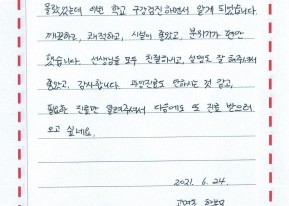 몰랐었는데 이번 학교 구강검진하면서 알게 되었습니다.
깨끗하고, 쾌적하고, 시설이 좋았고, 분위기가 편안
했습니다. 선생님들 모두 친절하시고, 설명도 잘 해주셔서
좋았고, 감사합니다. 과잉진료도 안하시는 것 같고,
필요한 진료만 알려주셔서 다음에도 또 진료 받으러
오고 싶네요.
2021. 6. 24.